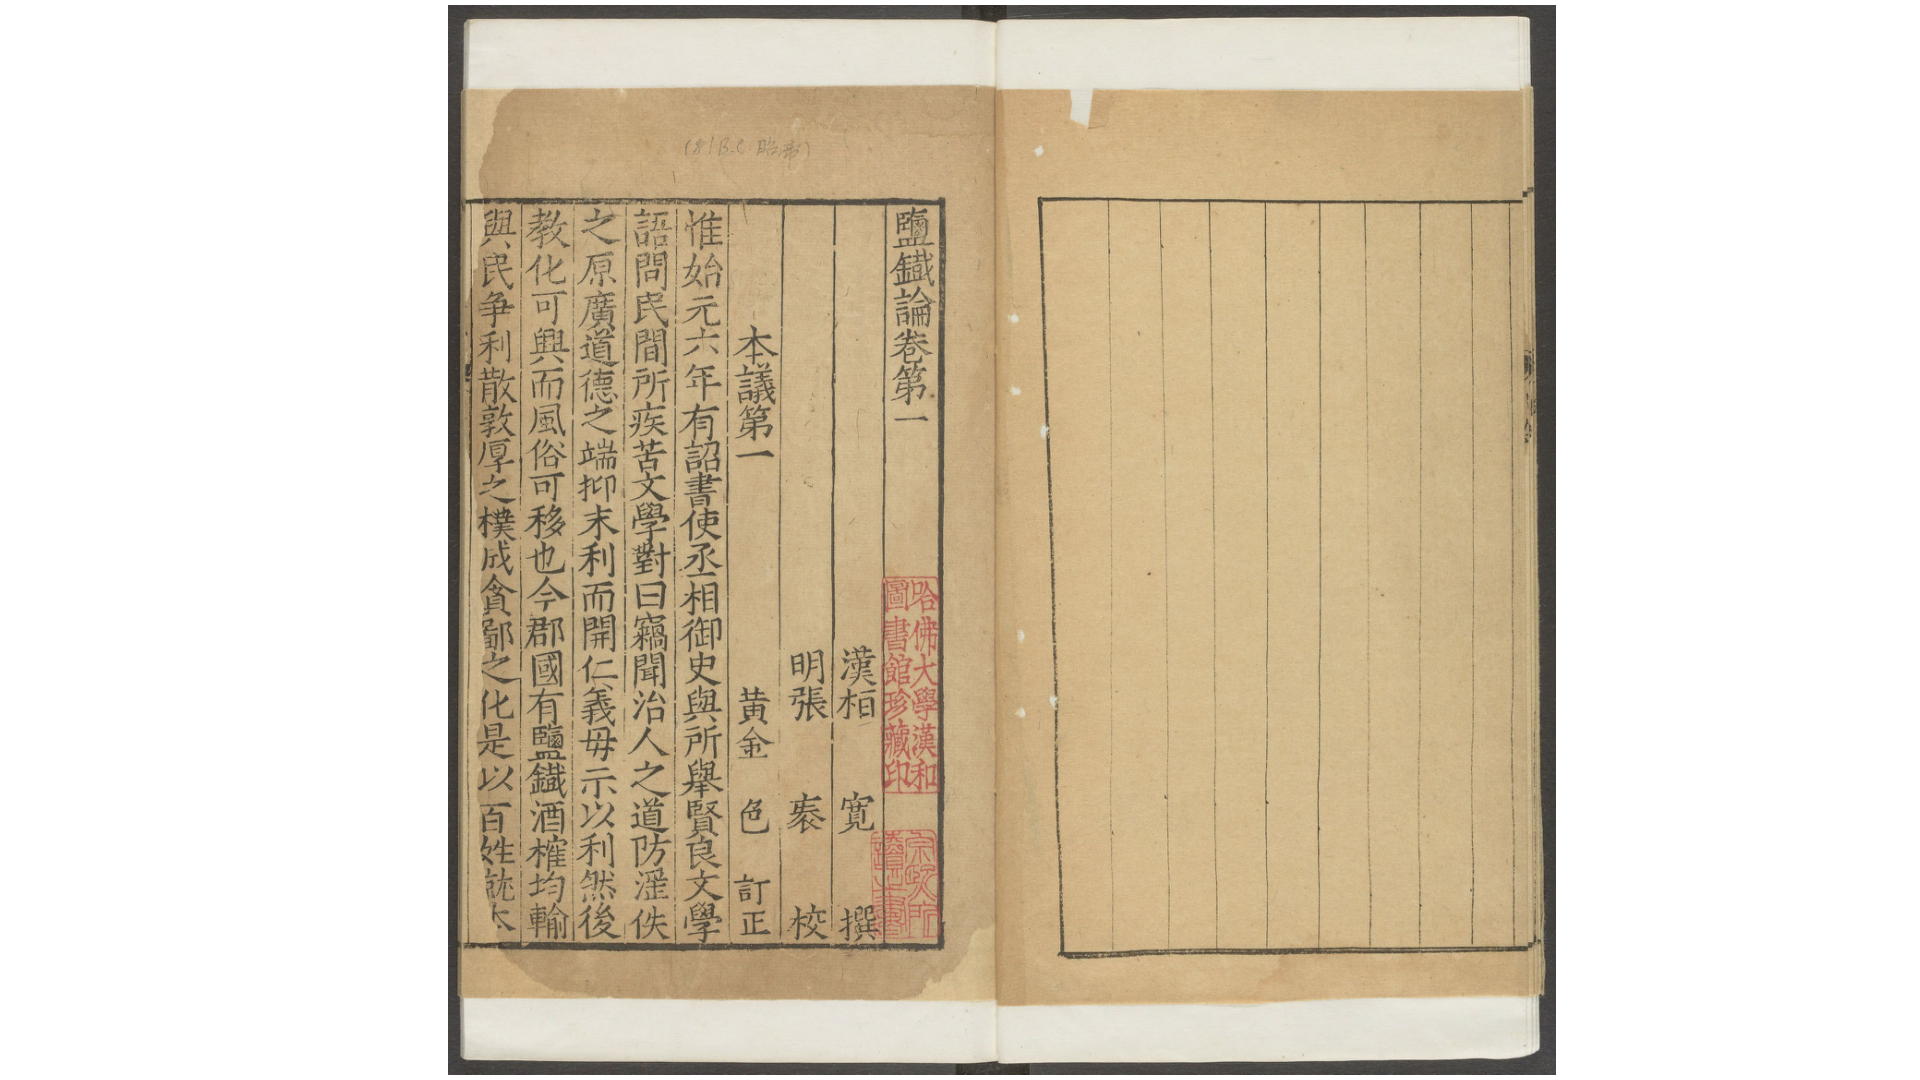 (81 B.C. 昭帝)
鹽鐵論卷第一
漢桓 寬 撰
明張 袠 校
黄金 色 訂正
本議第一
惟始元六年有詔書使丞相御史與所舉賢良文學
語問民間所疾苦文學對曰竊聞治人之道防淫佚
之原廣道德之端抑末利而開仁義毋示以利然後
教化可興而風俗可移也今郡國有鹽鐵酒榷均輸
與民争利散敦厚之樸成貪鄙之化是以百姓就本
哈佛大學漢和
圖書館珍藏印